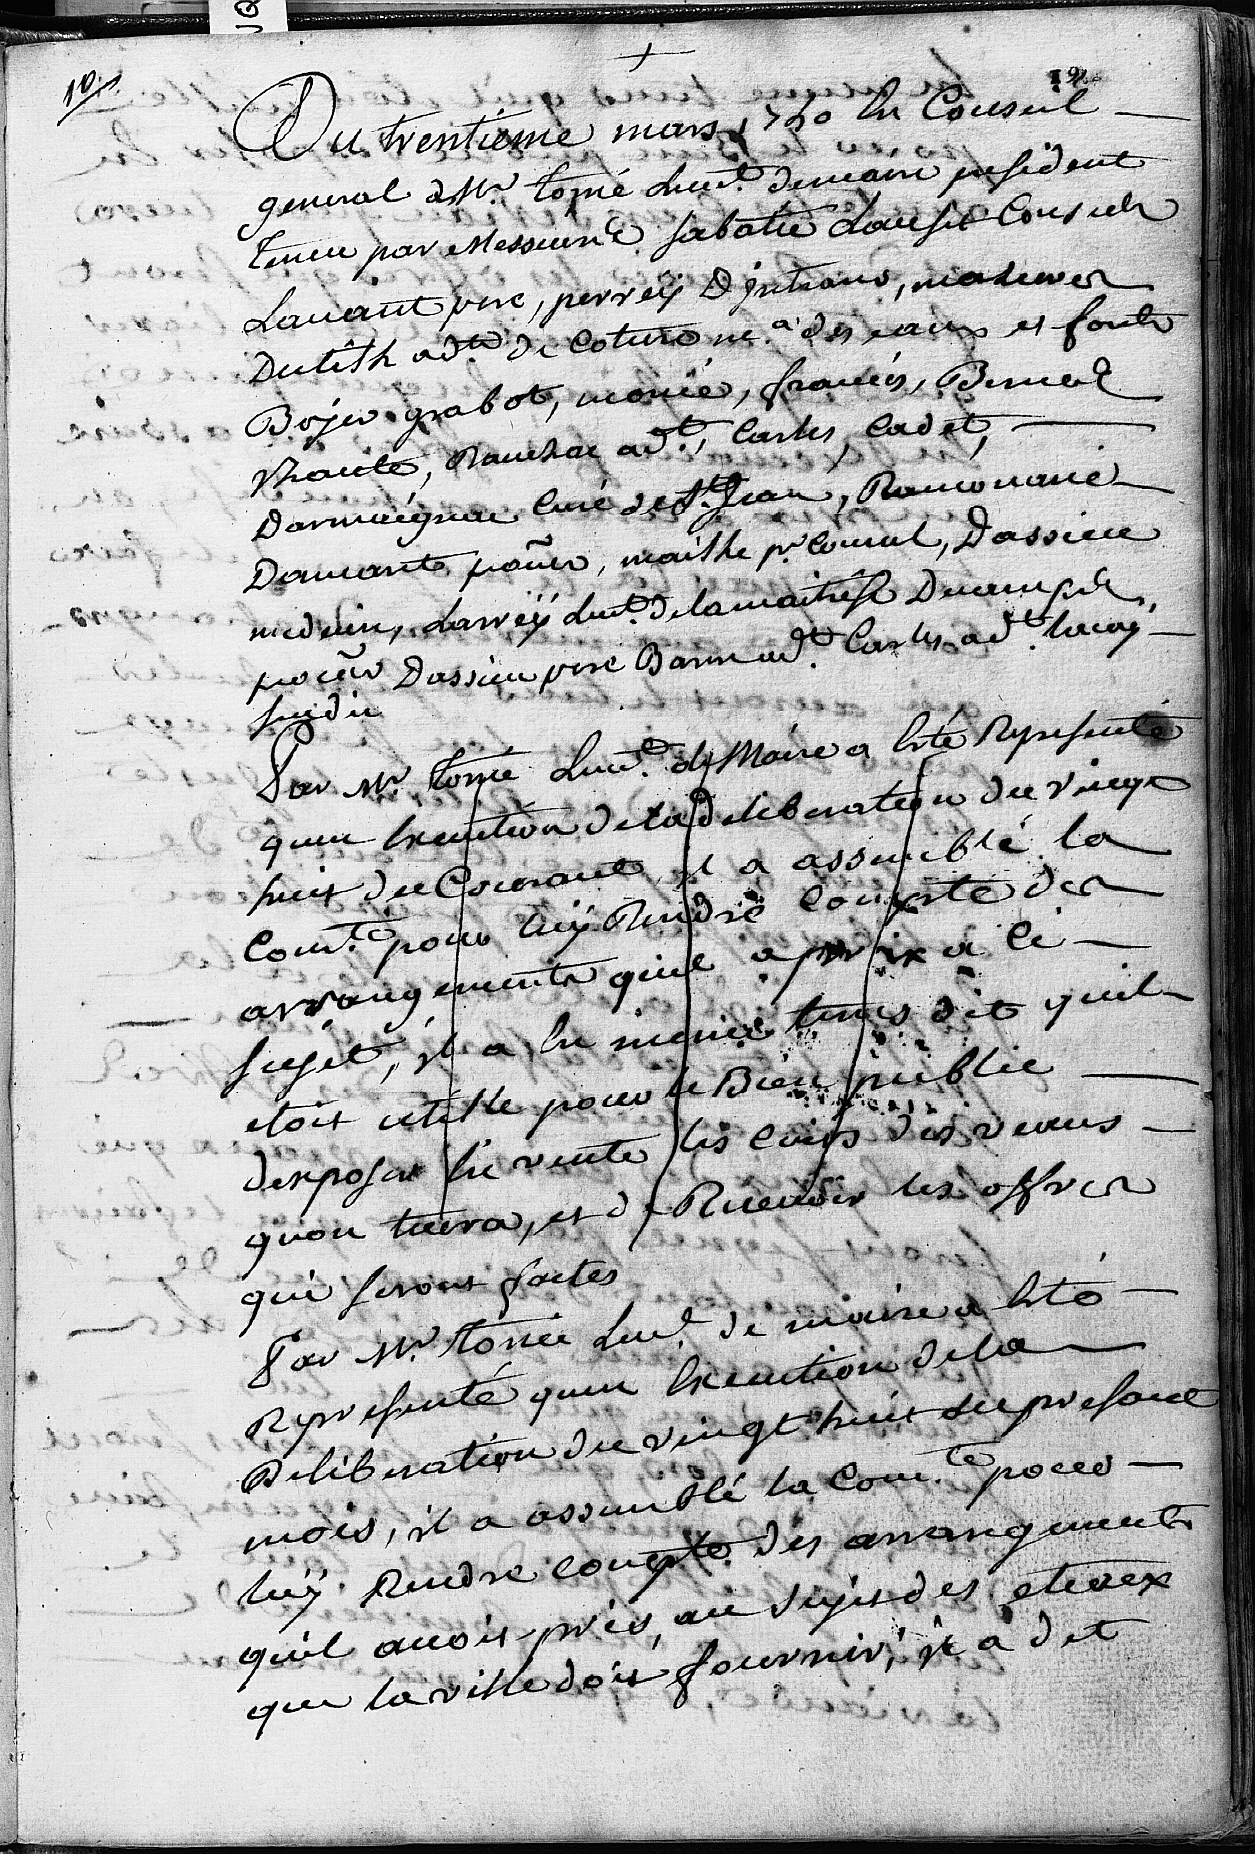 10
19
Du trentieme mars 1740 En Conseil
general a Mr. tornié Lieut. de maire president
tenu par Messieurs sabatié Conseiller
Lauant pere, perrey mateur
Dutilh adt. des eaux et forets
Boyer grabot, monié, francés, Bernad
adt., Carles, Cadet,
Darmaignac Curé de St. Jean,
Damante maithe pr. Consul, Dassieu
medecin, Larrey Lieut. de la maitrise
Dassieu pere adt. Carles adt. lacay
sindic
Par Mr. tornié Lieut. de Maire a Eté Representé
quen Execution de la deliberation du vingt
huit du Courant il a assemblé la
Comté. pour luy Rendre Compte des
arrangements quil a prix a Ce
sujet, il a En meme tems dit quil
etoit utille pour le Bien public
dexposer En vente les cuirs des veaus
quon tuera, et de Recevoir les offres
qui seront faites
Par Mr. tornié Lieut. de maire a Eté
Representé quen Execution de la
Deliberation du vingt huit du presant
mois, il a assemblé la Comte. pour
luy Rendre compte des arrangements
quil avoit pris, au sujet des eteaux
que la ville doit fournir, il a dit